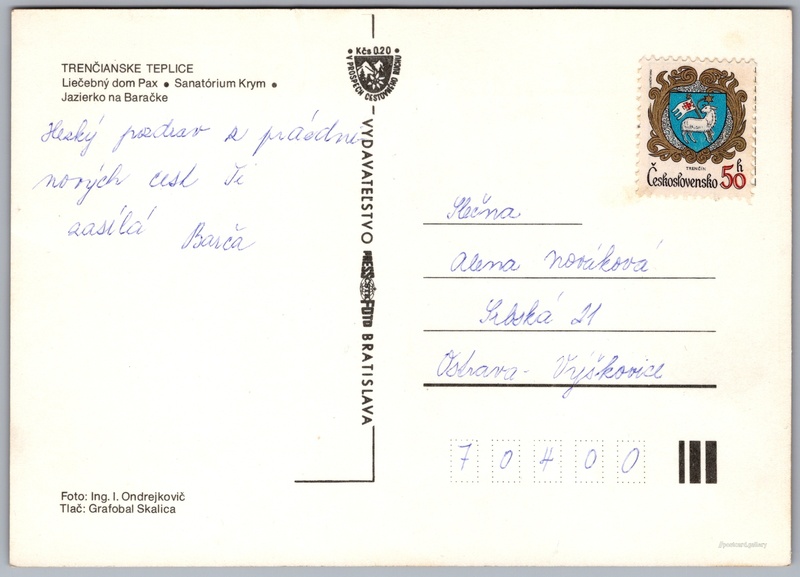 TRENČIANSKE TEPLICE
Liečebný dom Pax • Sanatórium Krym •
Jazierko na Baračke
Heský pozdrav z prázdni
nových cest Ti
zasílá
Barča
Kčs 0.20
V PROSPECH CESTOVNÉHO RUCHU
VYDAVATEĽSTVO PRESSFOTO BRATISLAVA
TRENČÍN
Československo 50 h
Slečna
Alena Nováková
Srbská 21
Ostrava - Výškovice
70400
Foto: Ing. I. Ondrejkovič
Tlač: Grafobal Skalica
postcard.gallery